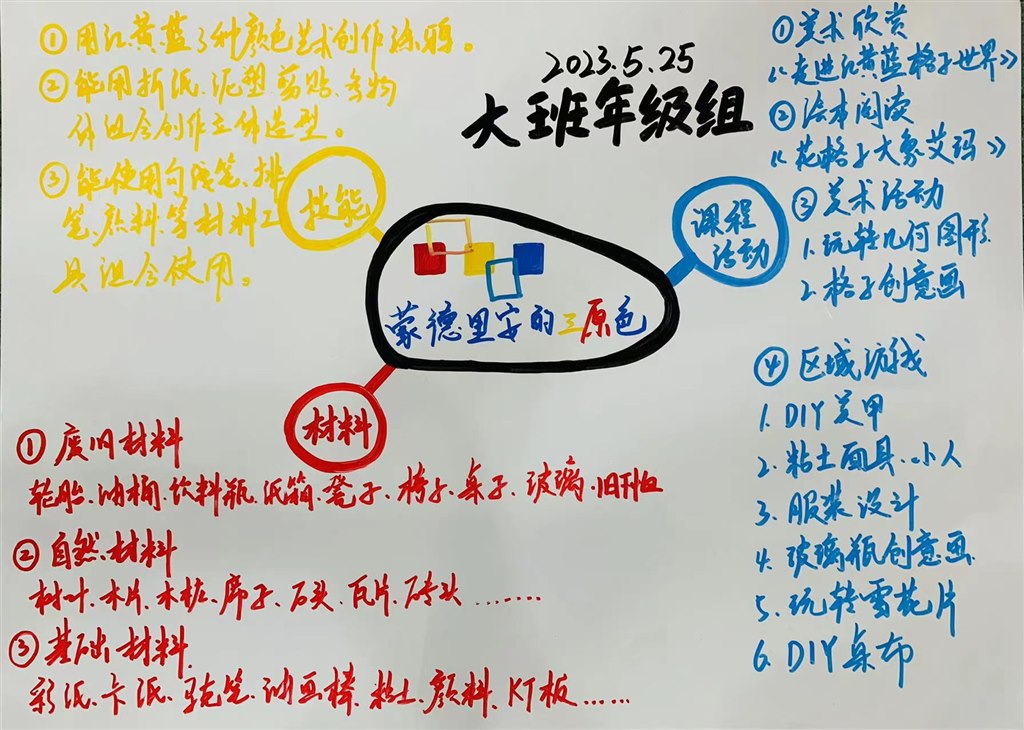 2023.5.25
大班年级组
蒙德里安的三原色
技能
①用红黄蓝3种颜色艺术创作涂鸦。
②能用折纸、泥塑、剪贴、多物
体组合创作立体造型。
③能使用勾线笔、排
笔、颜料等材料工
具组合使用。
课程
活动
①美术欣赏
《走进红黄蓝格子世界》
②绘本阅读
《花格子大象艾玛》
③美术活动
1.玩转几何图形
2.格子创意画
④区域游戏
1.DIY美甲
2.粘土面具、小人
3.服装设计
4.玻璃瓶创意画
5.玩转雪花片
6.DIY桌布
材料
①废旧材料
轮胎、油桶、饮料瓶、纸箱、凳子、椅子、桌子、玻璃、旧T恤
②自然材料
树叶、木片、木桩、帘子、石头、瓦片、砖头……
③基础材料
彩纸、卡纸、马克笔、油画棒、粘土、颜料、KT板……